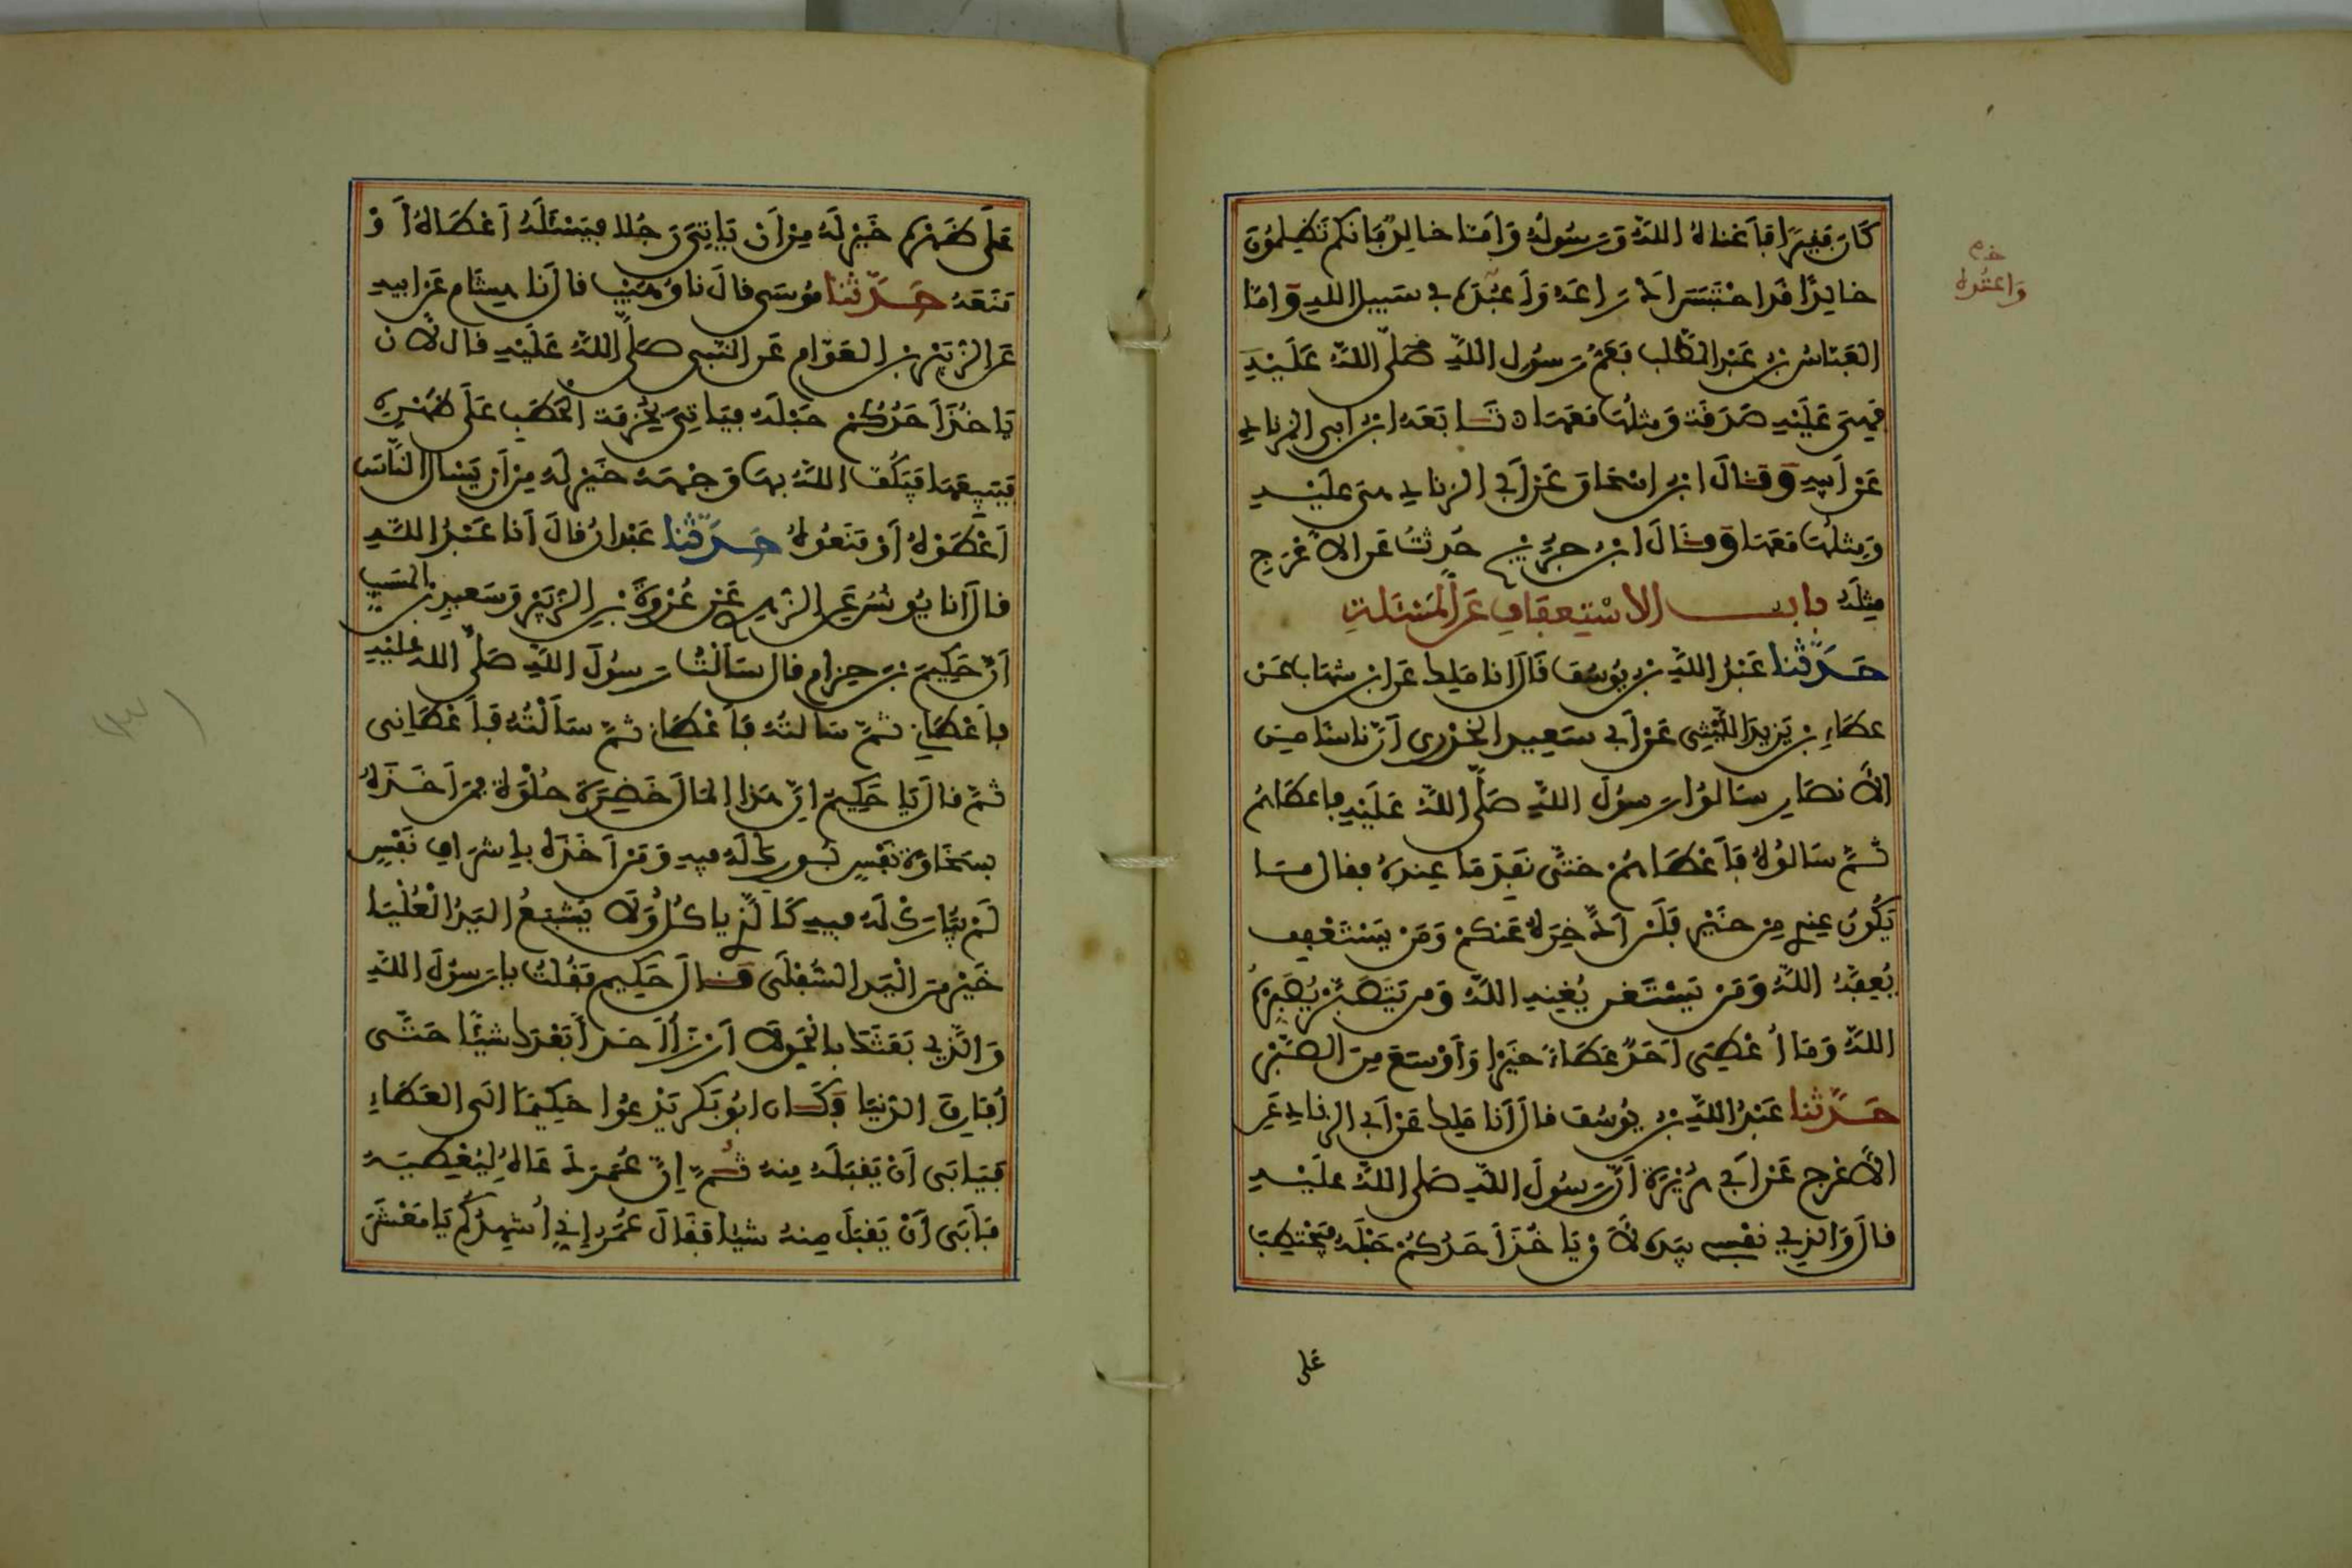 كَانَ فَقِيرًا فَأَغناهُ اللَّهُ وَرَسُولُهُ وَأَمَّا خَالِدٌ فَإنكم تَظْلِمُونَ
خَالِدًا قَدِ احْتَبَسَ أَدْرَاعَهُ وَأَعْبُدَهُ فِي سَبِيلِ اللَّهِ وَأمَّا
العَبَّاسُ بْنُ عَبْدِ المُطَّلِبِ فَعَمُّ رَسُولِ اللَّهِ صَلَّى اللَّهُ عَلَيْهِ
فَهِيَ عَلَيْهِ صَدَقَةٌ وَمِثْلُهَا مَعَهَا تَابَعَهُ ابْنُ أَبِي الزِّنَادِ
عَنْ أَبِيهِ وَقَالَ ابْنُ إِسْحَاقَ عَنْ أَبِي الزِّنَادِ هِيَ عَلَيْهِ
وَمِثْلُهَا مَعَهَا وَقَالَ ابْنُ جُرَيْجٍ حُدِّثْتُ عَنِ الأَعْرَجِ
مِثْلَهُ بَابُ الاسْتِعْفَافِ عَنِ الْمَسْئَلَةِ
حَدَّثَنَا عَبْدُ اللَّهِ بْنُ يُوسُفَ قَالَ أنا مَلِكٌ عَنِ ابْنِ شِهَابٍ عَنْ
عَطَاءِ بْنِ يَزِيدَ اللَّيْثِي عَنْ أَبِي سَعِيدٍ الْخُدْرِي أَنَّ نَاسًا مِنَ
الأَنْصَارِ سَأَلُوا رَسُولَ اللَّهِ صَلَّى اللَّهُ عَلَيْهِ فَأَعْطَاهُمْ
ثُمَّ سَأَلُوهُ فَأَعْطَاهُمْ حَتَّى نَفِدَ مَا عِنْدَهُ فَقَالَ مَا
يَكُونُ عِنْدِي مِنْ خَيْرٍ فَلَنْ أَدَّخِرَهُ عَنْكُمْ وَمَنْ يَسْتَعْفِفْ
يُعِفَّهُ اللَّهُ وَمَنْ يَسْتَغْنِ يُغْنِهِ اللَّهُ وَمَنْ يَتَصَبَّرْ يُصَبِّرْهُ
اللَّهُ وَمَا أُعْطِيَ أَحَدٌ عَطَاءً خَيْرًا وَأَوْسَعَ مِنَ الصَّبْرِ
حَدَّثَنَا عَبْدُ اللَّهِ بْنُ يُوسُفَ قَالَ أَنَا مَلِكٌ عَنْ أَبِي الزِّنَادِ عَنِ
الأَعْرَجِ عَنْ أَبِي هُرَيْرَةَ أَنَّ رَسُولَ اللَّهِ صَلَّى اللَّهُ عَلَيْهِ
قَالَ وَالَّذِي نَفْسِي بِيَدِهِ لأَنْ يَاخُذَ أَحَدُكُمْ حَبْلَهُ فَيَحْتَطِبَ
عَلى
وَاعتُدَهُ
عَلَى ظَهْرِهِ خَيْرٌ لَهُ مِنْ أَنْ يَاتِيَ رَجُلا فَيَسْئَلَهُ أَعْطَاهُ أَوْ
مَنَعَهُ حَدَّثَنَا مُوسَى قَالَ نا وُهَيْبٌ قَالَ نَا هِشَامٌ عَنْ أَبِيهِ
عَنِ الزُّبَيْرِ بْنِ الْعَوَّامِ عَنِ النَّبِي صَلَّى اللَّهُ عَلَيْهِ قَالَ لأَن
يَاخُذَ أَحَدُكُمْ حَبْلَهُ فَيَاتِيَ بِحُزْمَةِ الْحَطَبِ عَلَى ظَهْرِهِ
فَيَبِيعَهَا فَيَكُفَّ اللَّهُ بِهَا وَجْهَهُ خَيْرٌ لَهُ مِنْ أَنْ يَسْأَلَ النَّاسَ
أَعْطَوْهُ أَوْ مَنَعُوهُ حَدَّثَنَا عَبْدَانُ قَالَ أَنَا عَبْدُ اللَّهِ
قَالَ أَنا يُونُسُ عَنِ الزُّهْرِي عَنْ عُرْوَةَ بْنِ الزُّبَيْرِ وَسَعِيدِ بْنِ الْمُسَيِّبِ
أَنَّ حَكِيمَ بْنَ حِزَامٍ قَالَ سَأَلْتُ رَسُولَ اللَّهِ صَلَّى اللَّهُ عَلَيْهِ
فَأَعْطَانِي ثُمَّ سَأَلْتُهُ فَأَعْطَانِي ثُمَّ سَأَلْتُهُ فَأَعْطَانِي
ثُمَّ قَالَ يَا حَكِيمُ إِنَّ هَذَا الْمَالَ خَضِرَةٌ حُلْوَةٌ فَمَنْ أَخَذَهُ
بِسَخَاوَةِ نَفْسٍ بُورِكَ لَهُ فِيهِ وَمَنْ أَخَذَهُ بِإِشْرَافِ نَفْسٍ
لَمْ يُبَارَكْ لَهُ فِيهِ كَالَّذِي يَاكُلُ وَلاَ يَشْبَعُ الْيَدُ الْعُلْيَا
خَيْرٌ مِنَ الْيَدِ السُّفْلَى قَالَ حَكِيمٌ فَقُلْتُ يا رَسُولَ اللَّهِ
وَالَّذِي بَعَثَكَ بِالْحَقِّ لاَ أَرْزَأُ أَحَدًا بَعْدَكَ شَيْئًا حَتَّى
أُفَارِقَ الدُّنْيَا وَكَانَ أَبُو بَكْرٍ يَدْعُوا حَكِيمًا إِلَى الْعَطَاءِ
فَيَابَى أَنْ يَقْبَلَهُ مِنْهُ ثُمَّ إِنَّ عُمَرَ دَعَاهُ لِيُعْطِيَهُ
فَأَبَى أَنْ يَقْبَلَ مِنْهُ شَيْئًا فَقَالَ عُمَرُ إِنِّي أُشْهِدُكُمْ يَا مَعْشَرَ